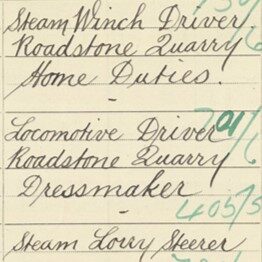 Steam Winch Driver.
Roadstone Quarry
Home Duties.
-
Locomotive Driver
Roadstone Quarry
Dressmaker
405/5
-
Steam Lorry Steerer